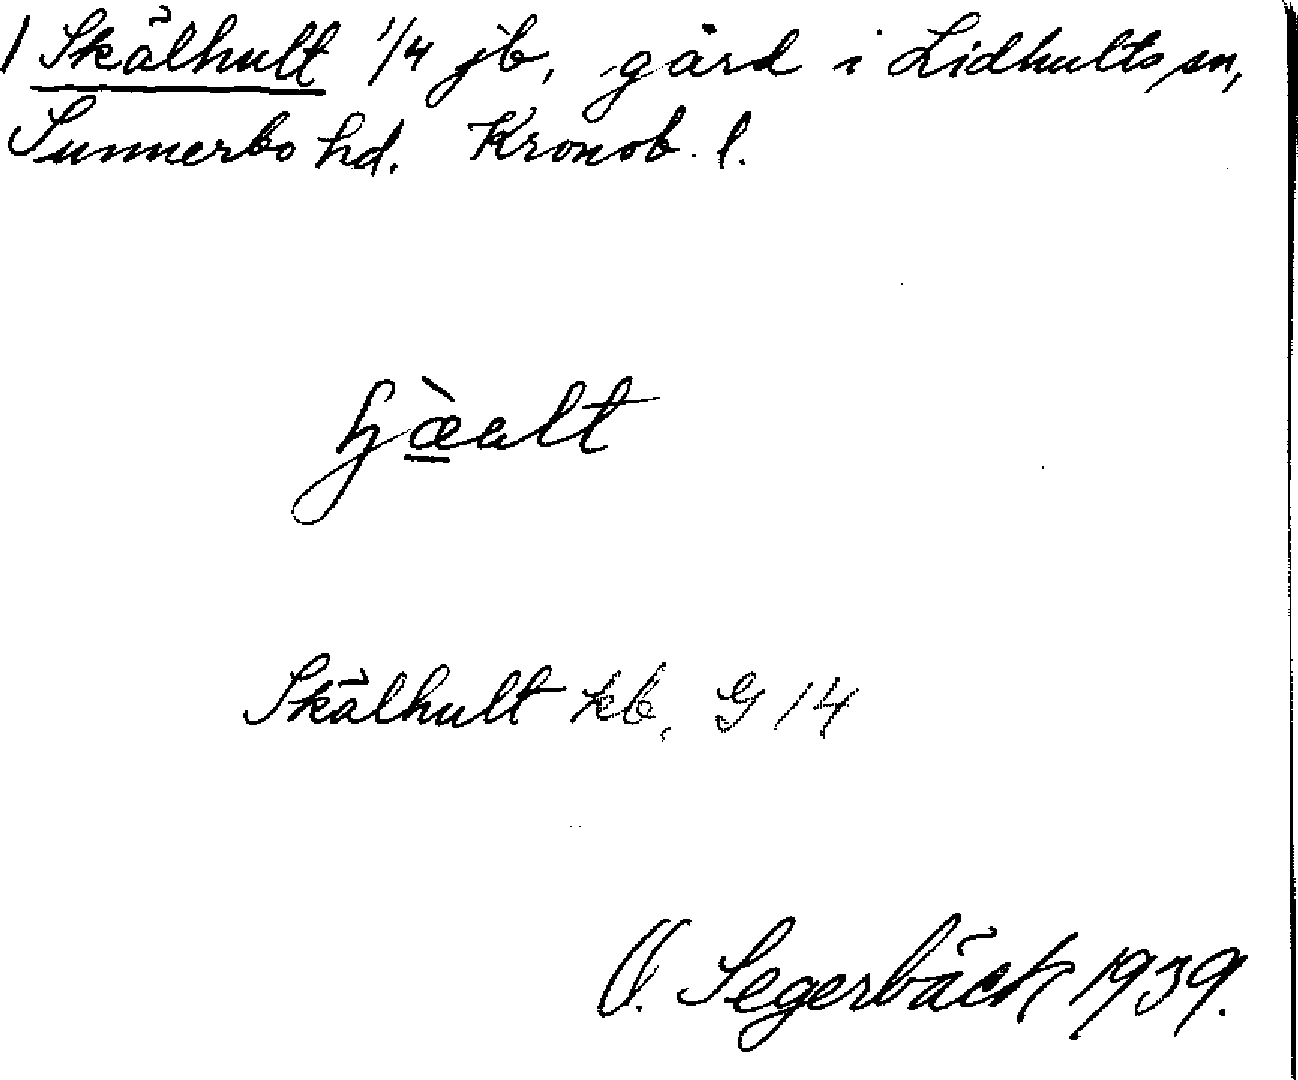 1 Skälhult 1/4 jb, gård i Lidhults sn,
Sunnerbo hd. Kronob. l.
ɧæ̀alt
Skälhult kb. G 14
O. Segerbäck 1939.